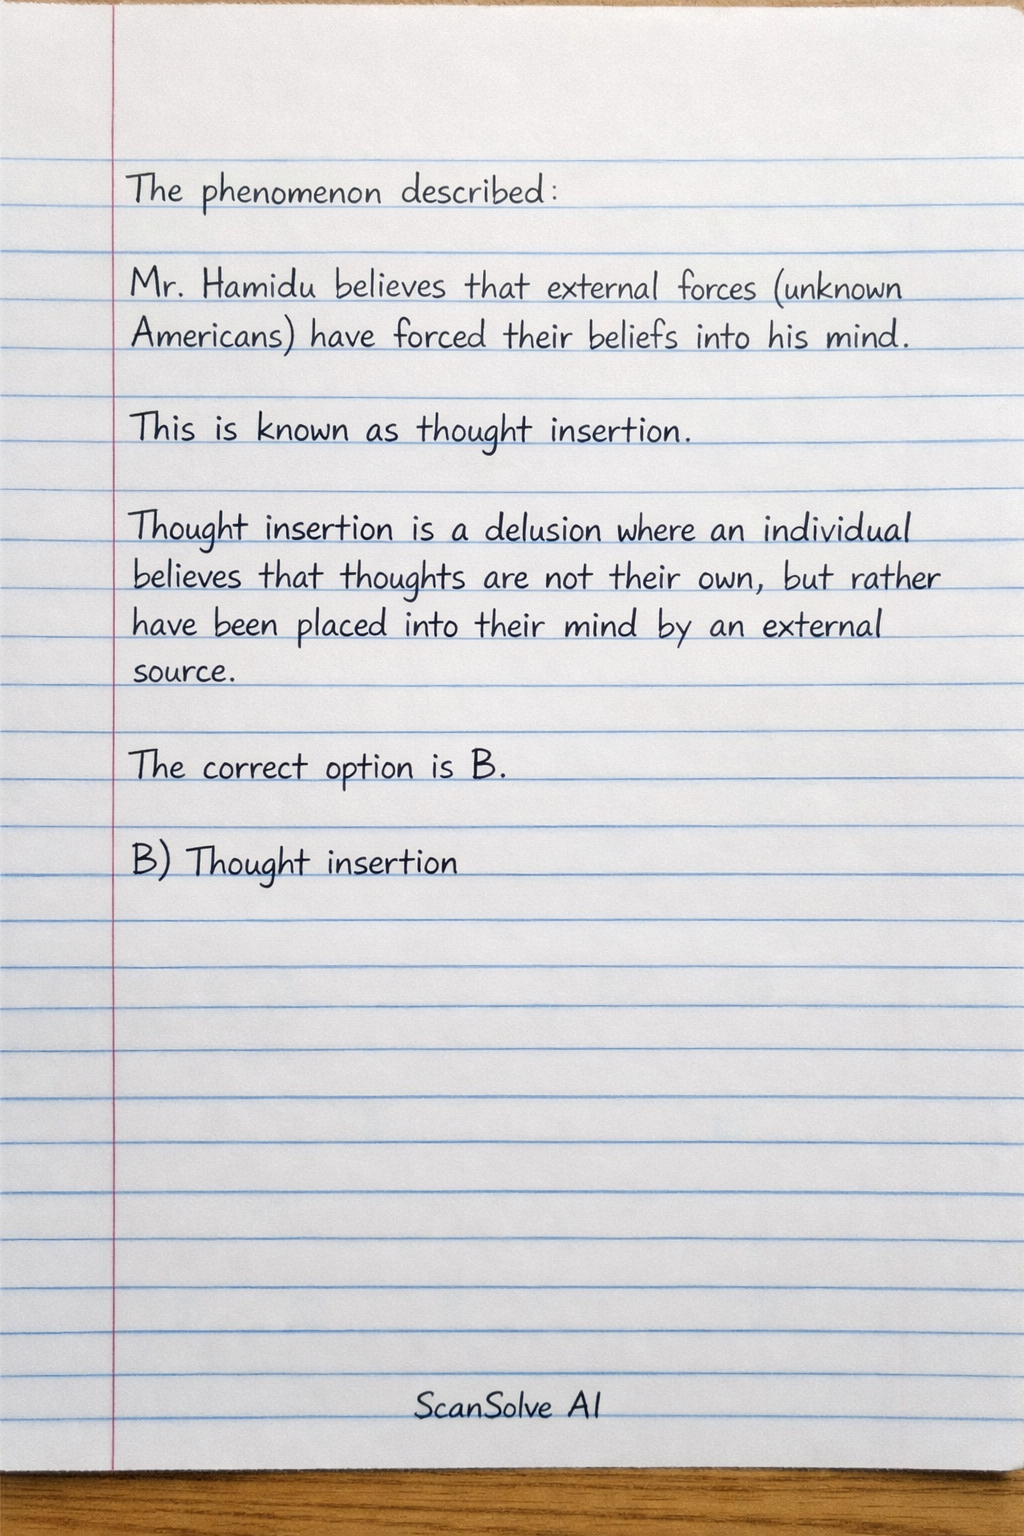 The phenomenon described:
Mr. Hamidu believes that external forces (unknown
Americans) have forced their beliefs into his mind.
This is known as thought insertion.
Thought insertion is a delusion where an individual
believes that thoughts are not their own, but rather
have been placed into their mind by an external
source.
The correct option is B.
B) Thought insertion
ScanSolve AI